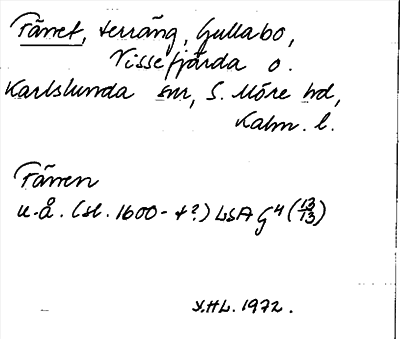 Färret, terräng, Gullabo,
Vissefjärda o.
Karlslunda snr, S. Möre hd,
Kalm. l.
Färren
u.å. (sl. 1600-t?) LSA G4 (13/13)
Y.HL. 1972.